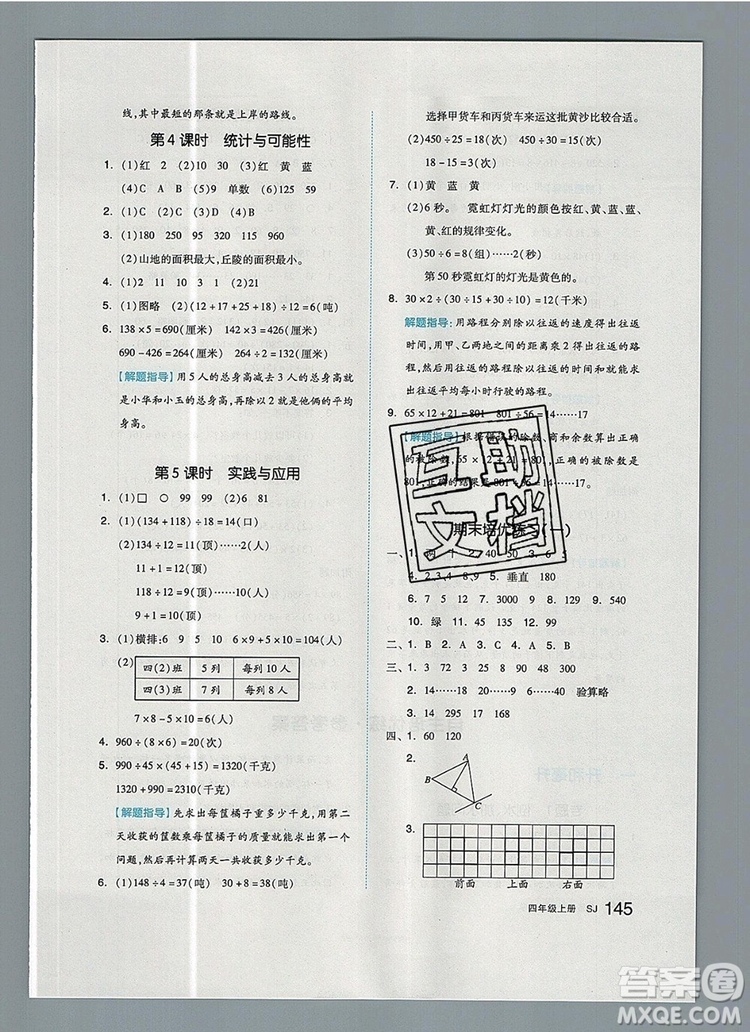 线,其中最短的那条就是上岸的路线。
第4课时 统计与可能性
1. (1)红 2 (2)10 30 (3)红 黄 蓝
(4)C A B (5)9 单数 (6)125 59
2. (1)C (2)C (3)C (4)D
3. (1)180 250 315 960
(2)山地的面积最大,丘陵的面积最小。
4. (1)2 11 10 3 1 (2)21
5. (1)图略 (2)(12+17+25+18)÷12=6(吨)
6. 138×5=690(厘米) 142×3=426(厘米)
690-426=264(厘米) 264÷2=132(厘米)
【解题指导】用5人的总身高减去3人的总身高就
是小华和小玉的总身高,再除以2就是他俩的平均
身高。
第5课时 实践与应用
1. (1)□ ○ 99 99 (2)6 81
2. (1)(134+118)÷18=14(口)
(2)134÷12=11(顶)……2(人)
11+1=12(顶)
118÷12=9(顶)……10(人)
9+1=10(顶)
3. (1)横排:6 9 5 10 6×9+5×10=104(人)
(2)
四(2)班 5列 每列10人
四(3)班 7列 每列8人
7×8-5×10=6(人)
4. 960÷(8×6)=20(次)
5. 990÷45×(45+15)=1320(千克)
1320+990=2310(千克)
【解题指导】先求出每筐橘子重多少千克,用第二
天收获的筐数乘每筐橘子的质量就能解出第一个
问题,然后再计算两天一共收获多少千克。
6. (1)148÷4=37(吨) 29×5=145(吨)
选择甲货车和丙货车来运这批黄沙比较合适。
(2)450÷25=18(次) 450÷30=15(次)
18-15=3(次)
7. (1)黄 蓝 黄
(2)6秒。霓虹灯灯光的颜色按红、黄、蓝、蓝、
黄、红的规律变化。
(3)50÷6=8(组)……2(秒)
第50秒霓虹灯的灯光是黄色的。
8. 30×2÷(30÷10+30÷15)=12(千米)
【解题指导】用路程分别除以往返的速度得出往返
的时间,用甲、乙两地之间的距离乘2得出往返的路
程,再用往返的路程除以往返的时间就能求出往返
平均每小时行驶的路程。
9. 65×12+21=801 801÷56=14……17
【解题指导】根据错误的除数、商和余数算出正确
的被除数,65×12+21=801,正确的被除数除以正
确的结果是801÷56=14……17。
期末培优练习(一)
互助
文档
10. 绿 14 39
二、1. A 2. B 3. C 4. A 5. B
三、1. 3 272 90 48 100 3
2. 14……18 20……40 8……40 验算略
3. 14 295 17 168
四、1. 60 120
2.
A
B
C
3.
前面 上面 右面
四年级上册 SJ 145
答案圈
MXQE.COM